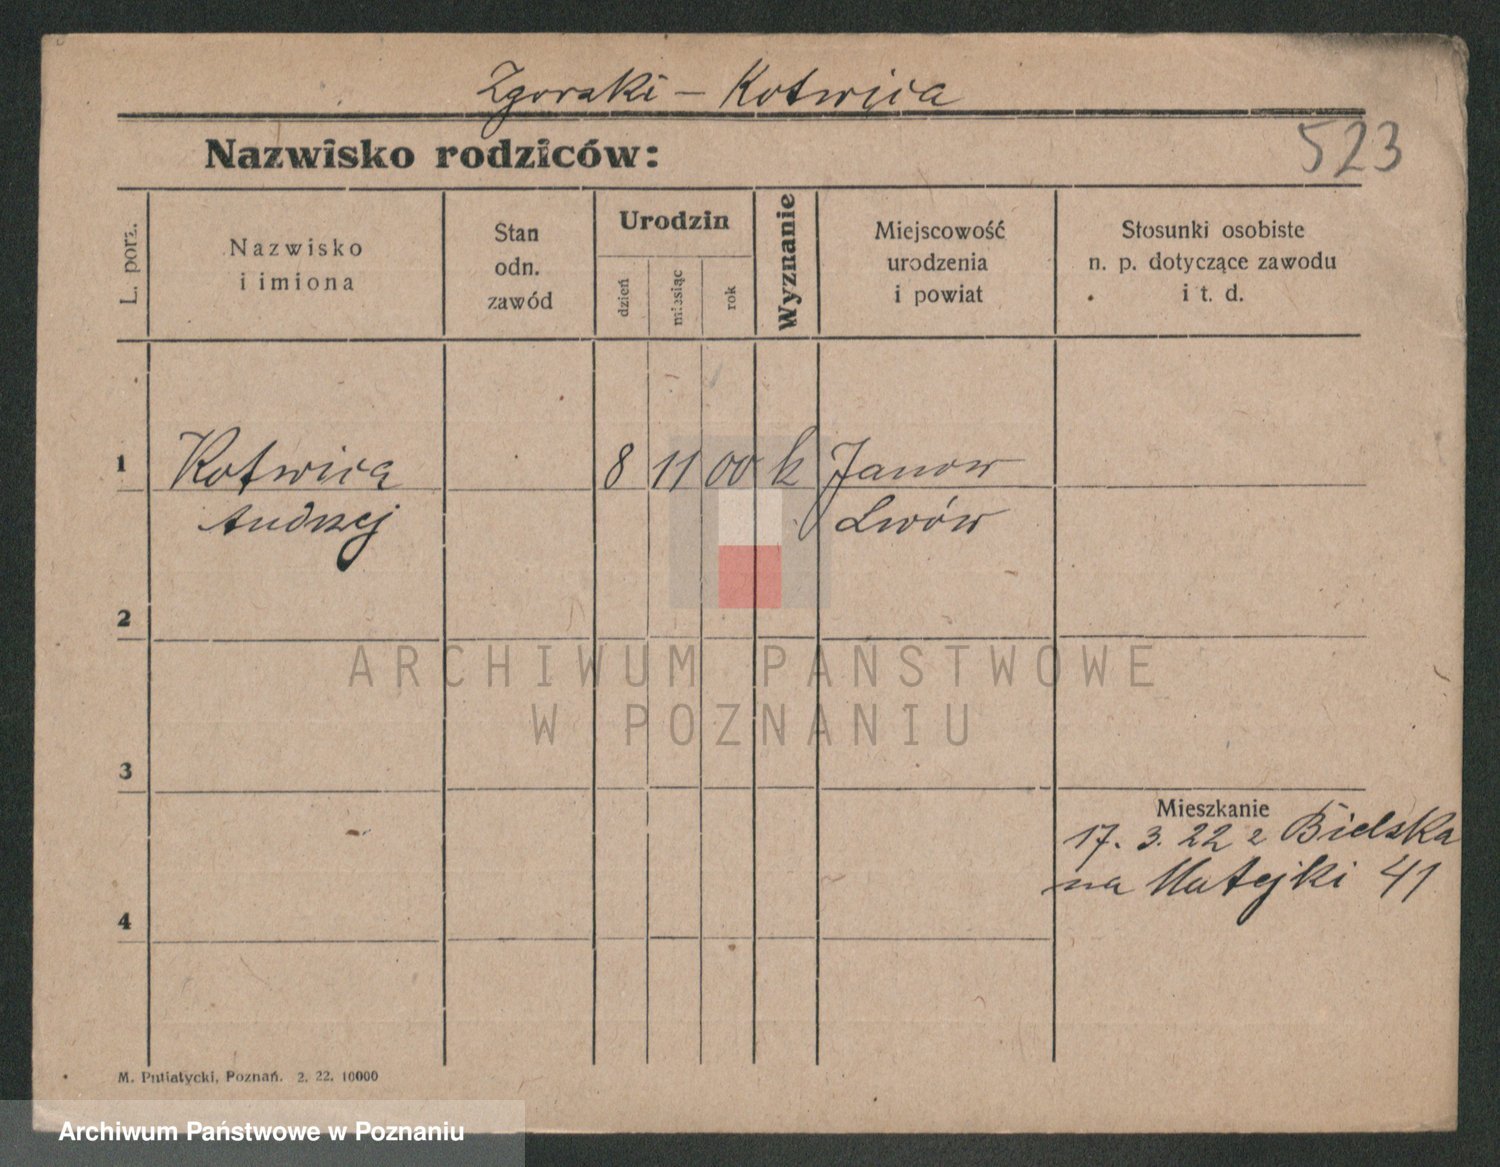 Zgorski – Kotwica
Nazwisko rodziców:
523
L. porz.
Nazwisko
i imiona
Stan
odn.
zawód
Urodzin
dzień
miesiąc
rok
Wyznanie
Miejscowość
urodzenia
i powiat
Stosunki osobiste
n. p. dotyczące zawodu
i t. d.
1
Kotwica
8
11
00
k
Janow
Andrzej
Lwów
2
ARCHIWUM PAŃSTWOWE
W POZNANIU
3
Mieszkanie
17. 3. 22 z Bielska
na Matejki 41
4
M. Putiatycki, Poznań. 2. 22. 10000
Archiwum Państwowe w Poznaniu